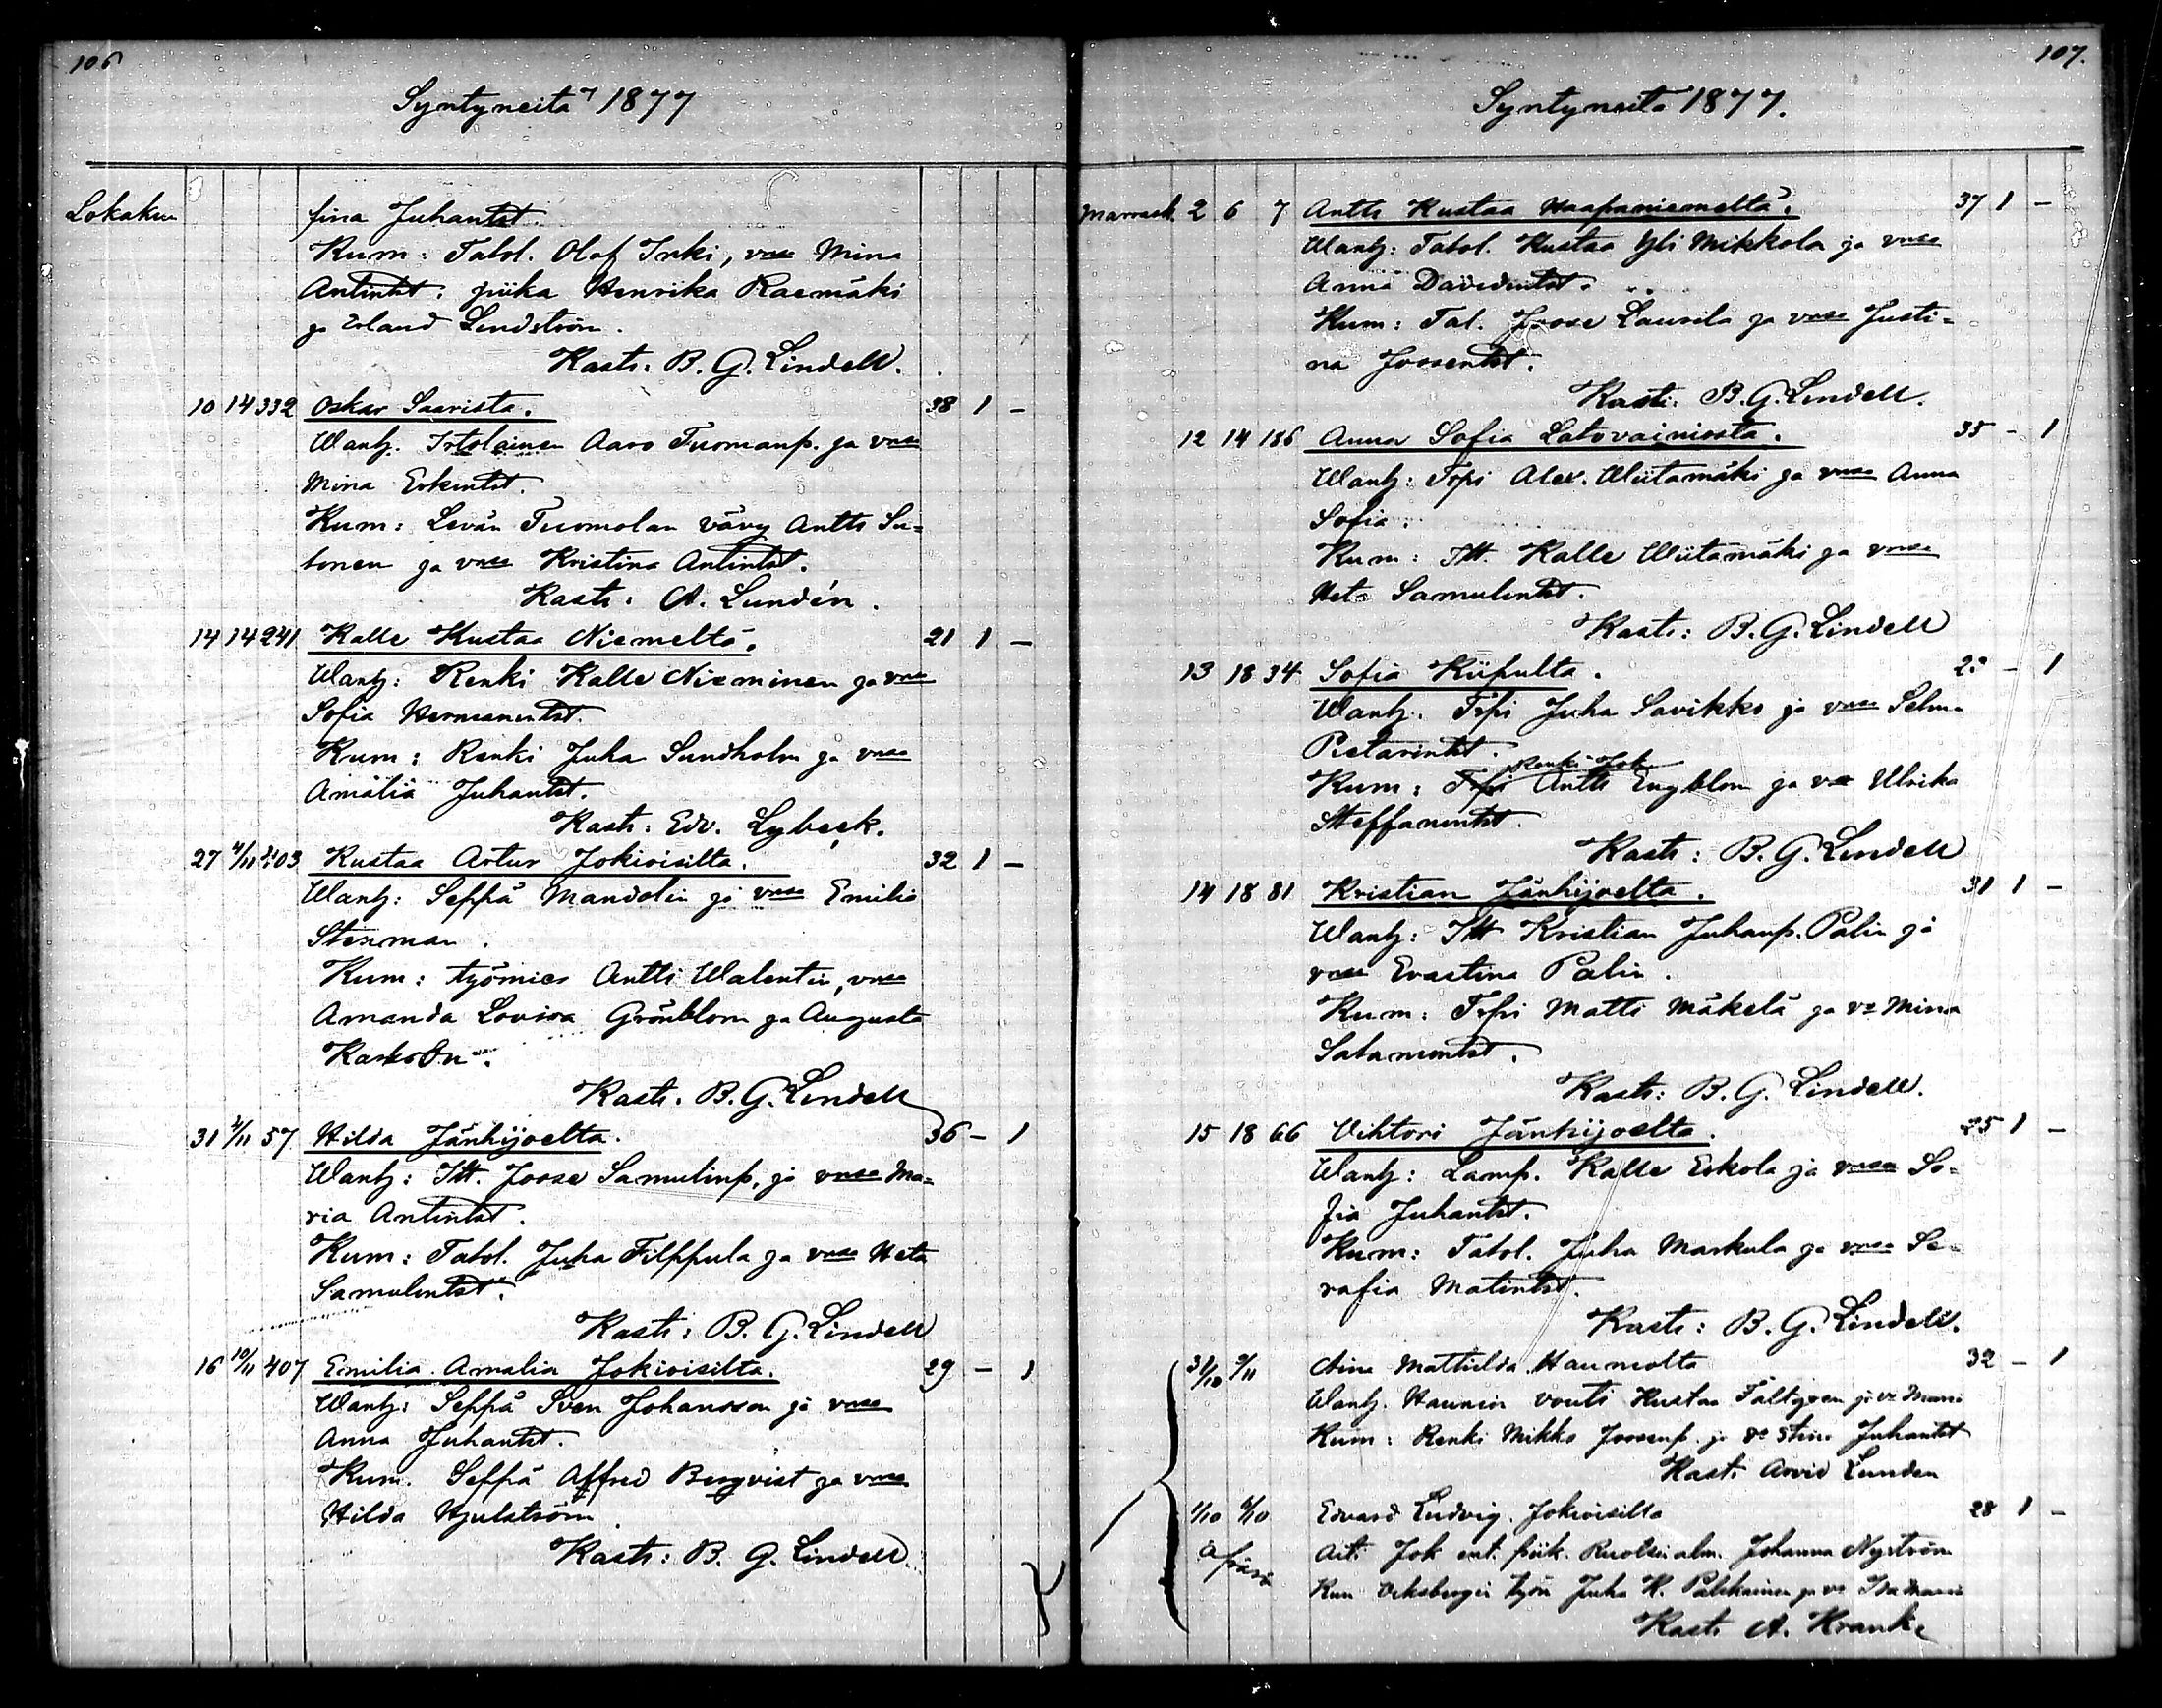 106
Syntyneitä 1877
Lokakuu fina Juhantst.
Kum: Talol. Olof Inki, vmsa Mina
Antintst. piika Henrika Raemäki
ja Erland Lindström.
Kasti: B. G. Lindell.
10 14 332 Oskar Saarista. 38 1 -
Wanh. Irtolainen Aaro Tuomanp. ja vmsa
Mina Erkintst.
Kum: Levän Tuomolan vävy Antti Su-
tonen ja vmsa Kristina Antintst.
Kasti: A. Lundén.
14 14 241 Kalle Kustaa Niemeltä. 21 1 -
Wanh: Renki Kalle Nieminen ja vmsa
Sofia Hermanintst.
Kum: Renki Juha Sundholm ja vmsa
Amalia Juhantst.
Kasti: Edv. Lybeck.
27 4/11 403 Kustaa Artur Jokioisilta. 32 1 -
Wanh: Seppä Mandolin ja vmsa Emilia
Stenman.
Kum: työmies Antti Walentin, vmsa
Amanda Lovisa Grönblom ja Augusta
Kasti. B. G. Lindell
31 4/11 57 Hilda Jänhijoelta. 36 - 1
Wanh: Itt. Joose Samulinp. ja vmsa Ma-
ria Antintst.
Kum: Talol. Juha Filppula ja vmsa Heta
Samulintst.
Kasti: B. G. Lindell
16 10/11 407 Emilia Amalia Jokioisilta. 29 - 1
Wanh: Seppä Sven Johansson ja vmsa
Anna Juhantst.
Kum. Seppä Alfred Bergvist ja vmsa
Hilda Hjulström.
Kasti: B. G. Lindell.
107.
Syntyneitä 1877.
Marrask. 2 6 7 Antti Kustaa Haapaniemeltä. 37 1 -
Wanh: Talol. Kustaa Yli Mikkola ja vmsa
Anna Davidintst.
Kum: Tal. Joose Laurila ja vmsa Justi-
na Joosentst.
Kasti: B. G. Lindell.
12 14 186 Anna Sofia Latovainiosta. 35 - 1
Wanh: Trpi Alex. Wiitamäki ja vmsa Anna
Sofia.
Kum: Itt. Kalle Wiitamäki ja vmsa
Heta Samulintst.
Kasti: B. G. Lindell
13 18 34 Sofia Kiipulta. - 1
Wanh. Trpi Juha Savikko ja vmsa Selma
Pietarintst.
Renki Jok
Kum: Trpi Antti Engblom ja va Ulrika
Steffanintst.
Kasti: B. G. Lindell
14 18 81 Kristian Jänhijoelta. 31 1 -
Wanh: Itt Kristian Juhanp. Palin ja
vmsa Evastina Palin.
Kum: Trpi Matti Mäkelä ja va Mina
Salamontst.
Kasti: B. G. Lindell.
15 18 66 Vihtori Jänhijoelta. 25 1 -
Wanh: Lamp. Kalle Eskola ja vmsa So-
fia Juhantst.
Kum: Talol. Juha Markula ja vmsa Se-
rafia Matintst.
Kasti: B. G. Lindell.
31/10 9/11 Aina Mathilda Haunolta 32 - 1
Wanh. Haunin vouti Kustaa Fältgren ja va Maria
Kum: Renki Mikko Joosenp. ja va Stina Juhantst
Kasti Arvid Lunden
1/10 6/10 Edvard Ludvig. Jokioisilta 28 1 -
Äiti Jok ent. piik. Ruotsin alm. Johanna Nyström
Kum työm Juha K. ja va
Kasti A. Krank